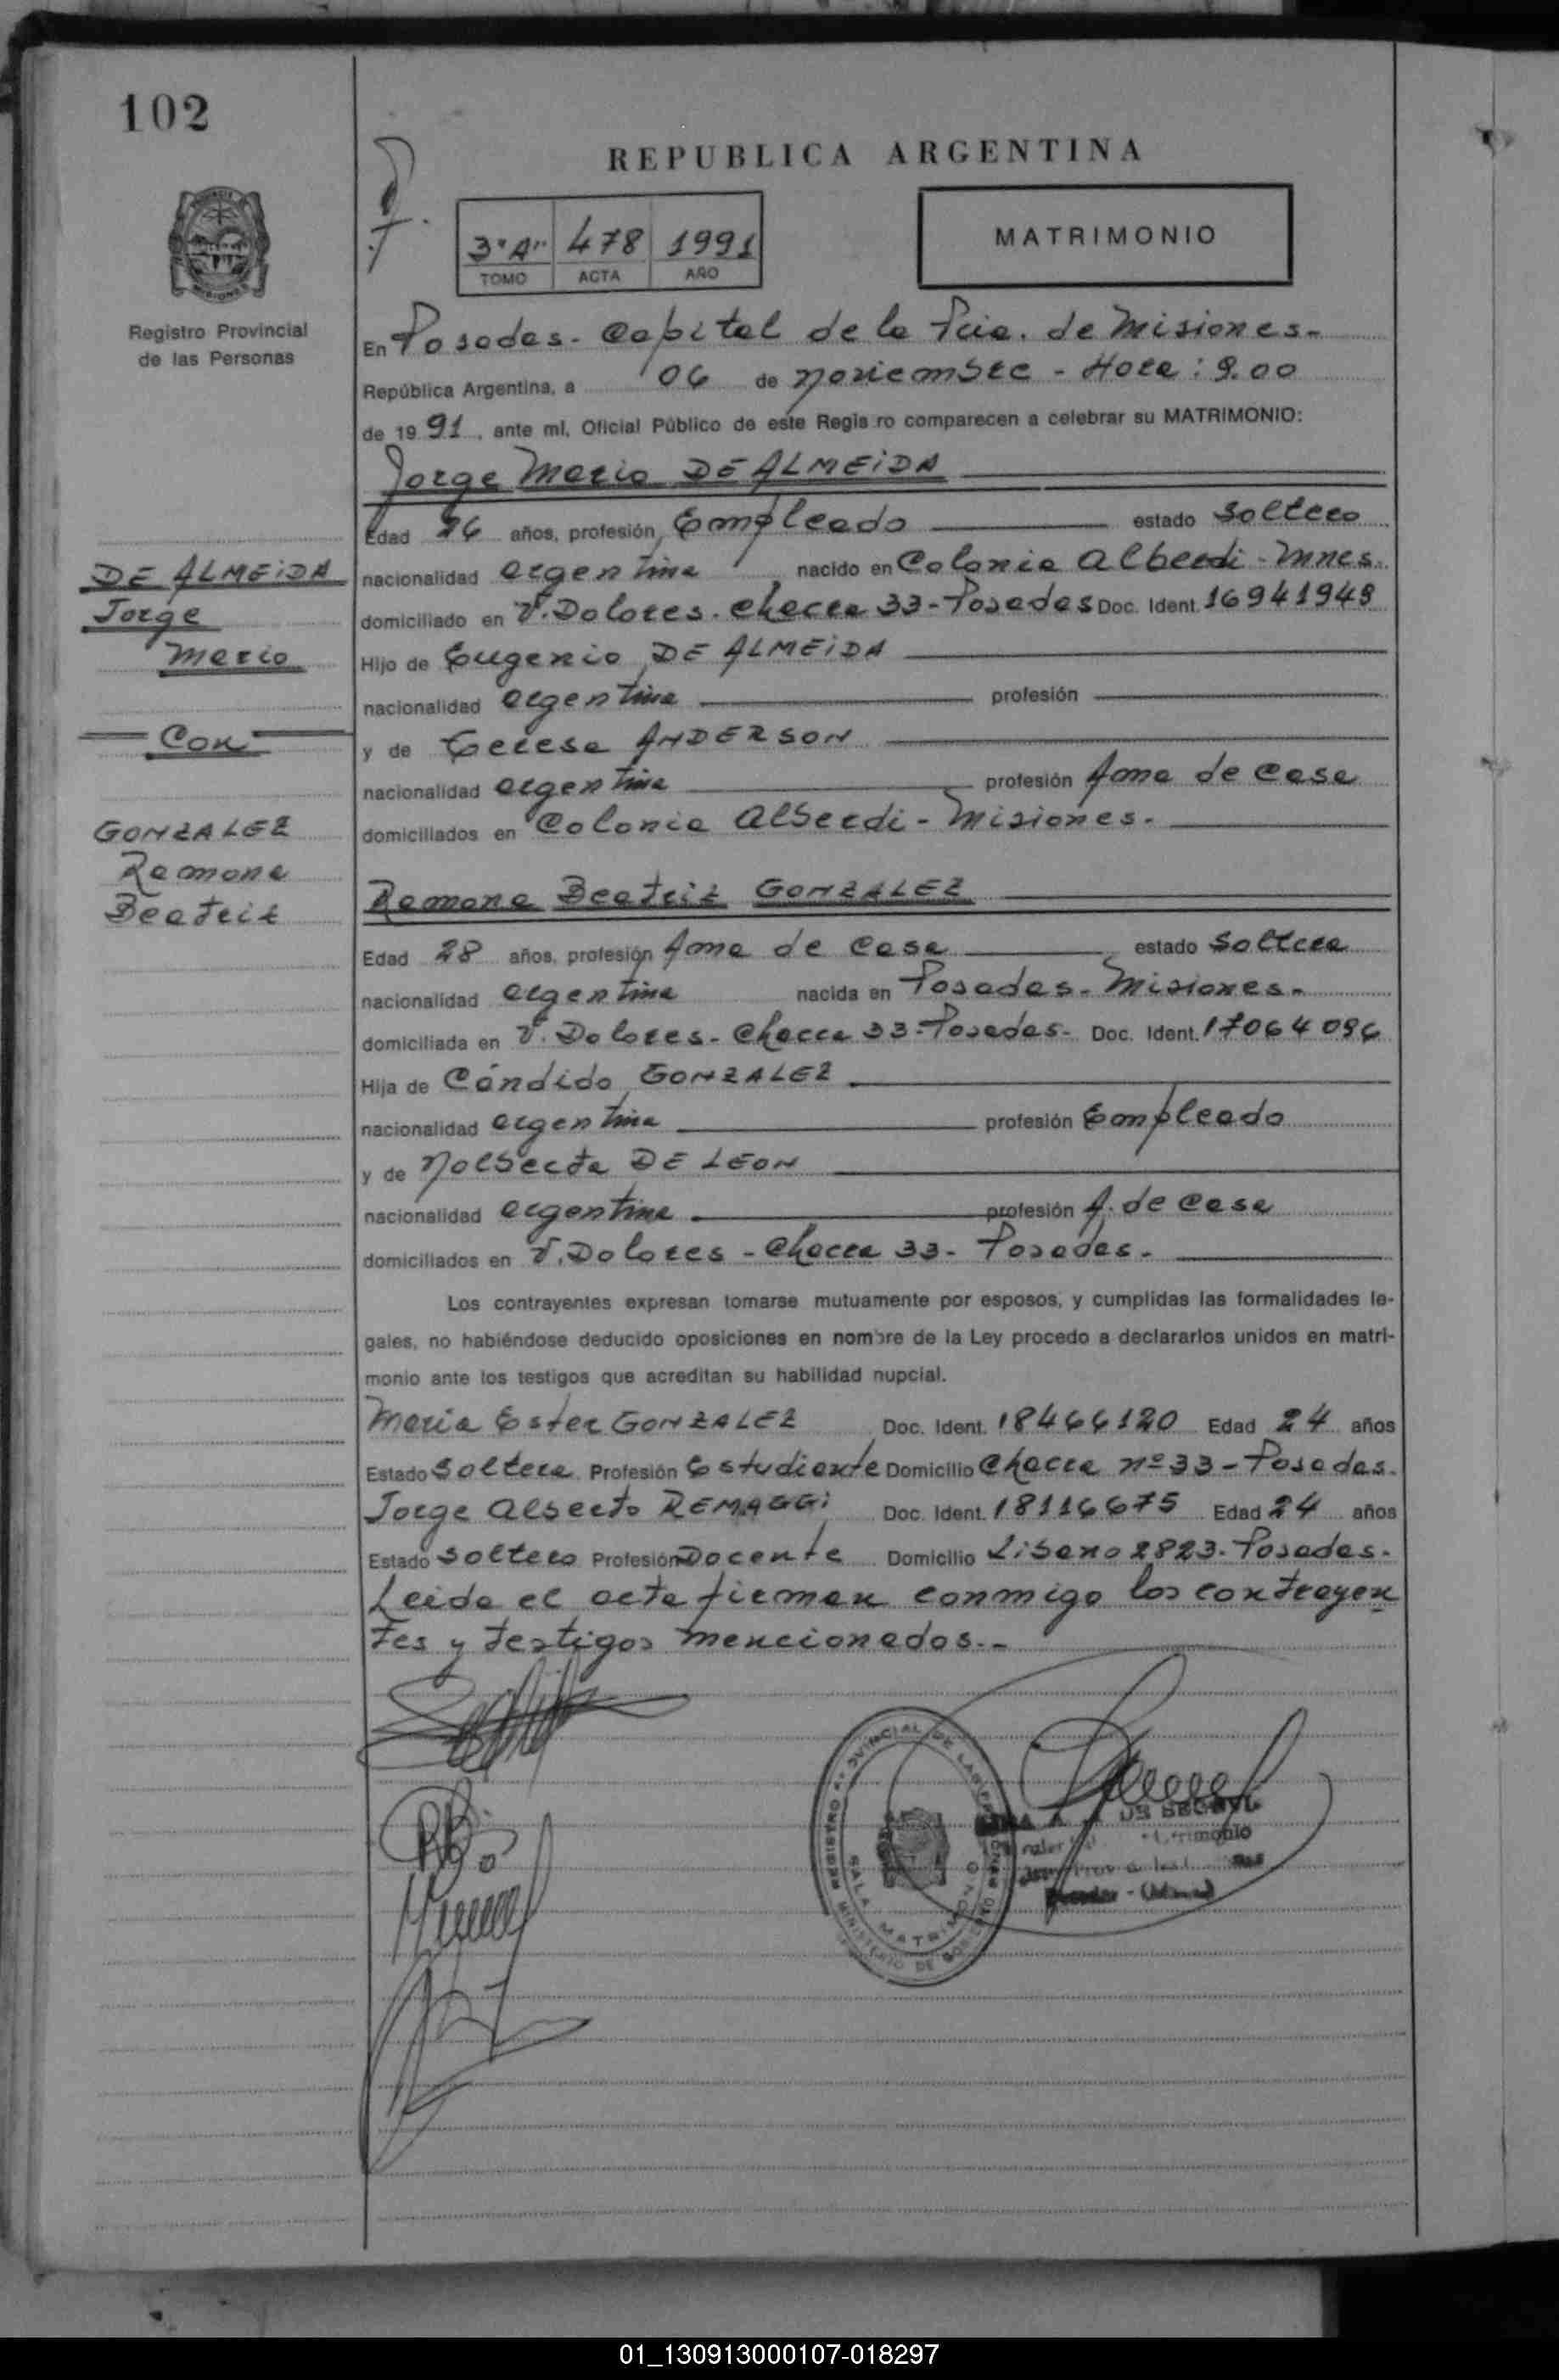 102
REPUBLICA ARGENTINA
3º "A" 478 1991
TOMO ACTA AÑO
MATRIMONIO
Registro Provincial
de las Personas
En Posadas - Capital de la Pcia. de Misiones.-
República Argentina, a 06 de noviembre - Hora: 9.00
de 1991, ante mí, Oficial Público de este Regis ro comparecen a celebrar su MATRIMONIO:
Jorge Mario DE ALMEIDA
Edad 26 años, profesión Empleado estado Soltero
nacionalidad argentina nacido en Colonia Alberdi - Mnes.
domiciliado en V. Dolores - Chacra 33 - Posadas Doc. Ident. 16941949
Hijo de Eugenio DE ALMEIDA
nacionalidad argentina profesión
y de Teresa ANDERSON
nacionalidad argentina profesión Ama de Casa
domiciliados en Colonia Alberdi - Misiones.-
DE ALMEIDA
Jorge
Mario
Con
GONZALEZ
Ramona
Beatriz
Ramona Beatriz GONZALEZ
Edad 28 años, profesión Ama de Casa estado Soltera
nacionalidad argentina nacida en Posadas - Misiones.-
domiciliada en V. Dolores - Chacra 33 - Posadas - Doc. Ident. 17064096
Hija de Cándido GONZALEZ
nacionalidad argentina profesión Empleado
y de Norberta DE LEON
nacionalidad argentina profesión A. de Casa
domiciliados en V. Dolores - Chacra 33 - Posadas.-
Los contrayentes expresan tomarse mutuamente por esposos, y cumplidas las formalidades le-
gales, no habiéndose deducido oposiciones en nombre de la Ley procedo a declararlos unidos en matri-
monio ante los testigos que acreditan su habilidad nupcial.
Maria Ester GONZALEZ Doc. Ident. 18466120 Edad 24 años
Estado Soltera Profesión Estudiante Domicilio Chacra nº 33 - Posadas.
Jorge Alberto REMAGGI Doc. Ident. 18116675 Edad 24 años
Estado Soltero Profesión Docente Domicilio Libano 2823 - Posadas.-
Leida el acta firman conmigo los contrayen
tes y testigos mencionados.-
REGISTRO PROVINCIAL DE LAS PERSONAS
SALA MATRIMONIO
MINISTERIO DE GOBIERNO
01_130913000107-018297